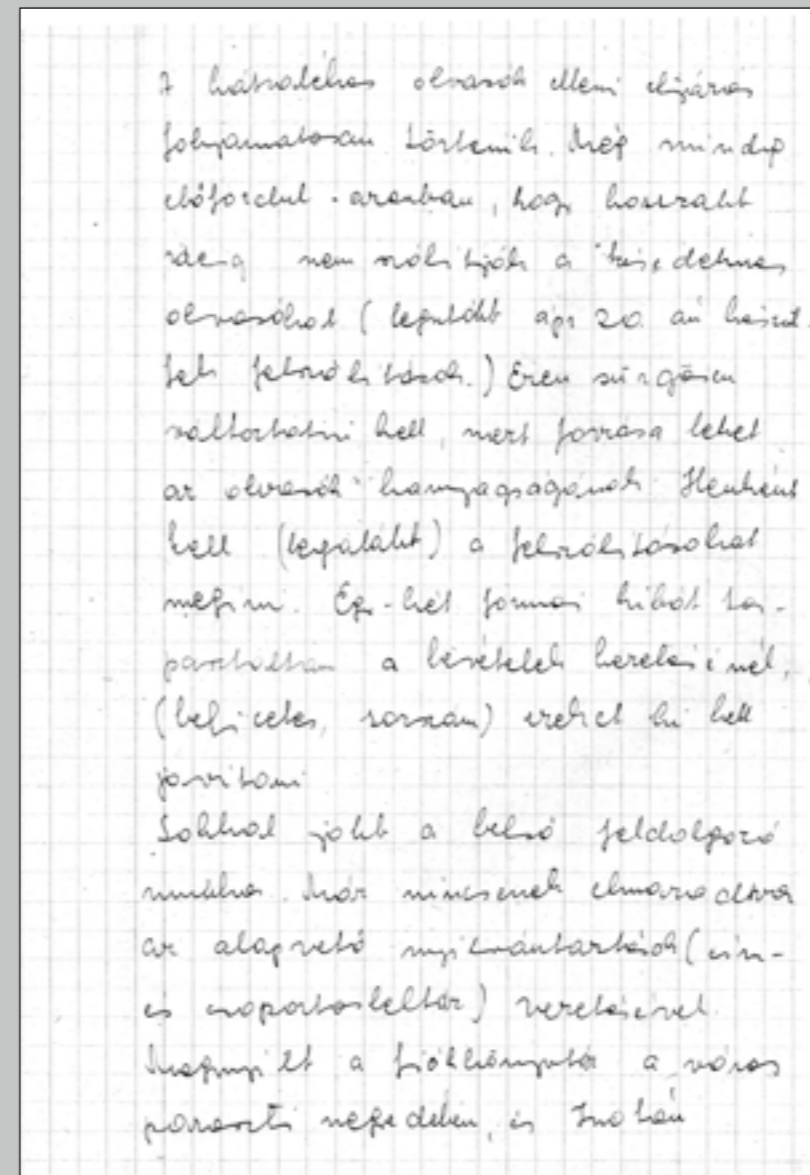 A hátralékos olvasók elleni eljárás
folyamatosan történik. Még mindig
előfordul azonban, hogy hosszabb
ideig nem szólítják a késedelmes
olvasókat (legutóbb ápr 20. án készül-
tek felszólítások.) Ezen sürgősen
változtatni kell, mert forrása lehet
az olvasók hanyagságának. Hetenként
kell (legalább) a felszólításokat
megírni. Egy-két formai hibát ta-
pasztaltam a bevételek kezelésénél,
(befizetés, sorszám) ezeket ki kell
javítani
Sokkal jobb a belső feldolgozó
munka. Már nincsenek elmaradva
az alapvető nyilvántartások (cím-
és csoportosleltár) vezetésével.
Megnyílt a fiókkönyvtár a város
paraszti negyedében, és